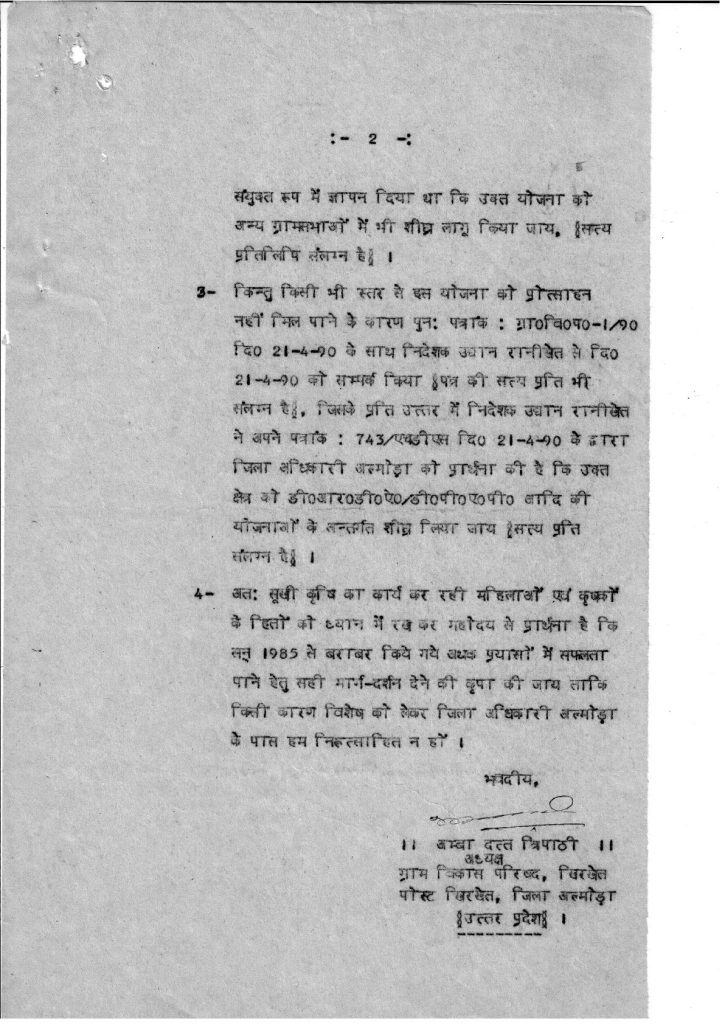 :- 2 -:
संयुक्त रूप में ज्ञापन दिया था कि उक्त योजना को
अन्य ग्रामसभाओं में भी शीघ्र लागू किया जाय, ≬सत्य
प्रतिलिपि संलग्न है≬ ।
3- किन्तु किसी भी स्तर से इस योजना को प्रोत्साहन
नहीं मिल पाने के कारण पुन: पत्रांक : ग्रा0वि0प0-1/90
दि0 21-4-90 के साथ निदेशक उद्यान रानीखेत से दि0
21-4-90 को सम्पर्क किया ≬पत्र की सत्य प्रति भी
संलग्न है≬, जिसके प्रति उत्तर में निदेशक उद्यान रानीखेत
ने अपने पत्रांक : 743/एचडीएस दि0 21-4-90 के द्वारा
जिला अधिकारी अल्मोड़ा को प्रार्थना की है कि उक्त
क्षेत्र को डी0आर0डी0ऐ0/डी0पी0ए0पी0 आदि की
योजनाओं के अन्तर्गत शीघ्र लिया जाय ≬सत्य प्रति
संलग्न है≬ ।
4- अत: सूखी कृषि का कार्य कर रही महिलाओं एवं कृषकों
के हितों को ध्यान में रख कर महोदय से प्रार्थना है कि
सन् 1985 से बराबर किये गये अथक प्रयासों में सफलता
पाने हेतु सही मार्ग-दर्शन देने की कृपा की जाय ताकि
किसी कारण विशेष को लेकर जिला अधिकारी अल्मोड़ा
के पास हम निरूत्साहित न हों ।
भवदीय,
।। अम्बा दत्त त्रिपाठी ।।
अध्यक्ष
ग्राम विकास परिषद, खिरखेत
पोस्ट खिरखेत, जिला अल्मोड़ा
≬उत्तर प्रदेश≬ ।